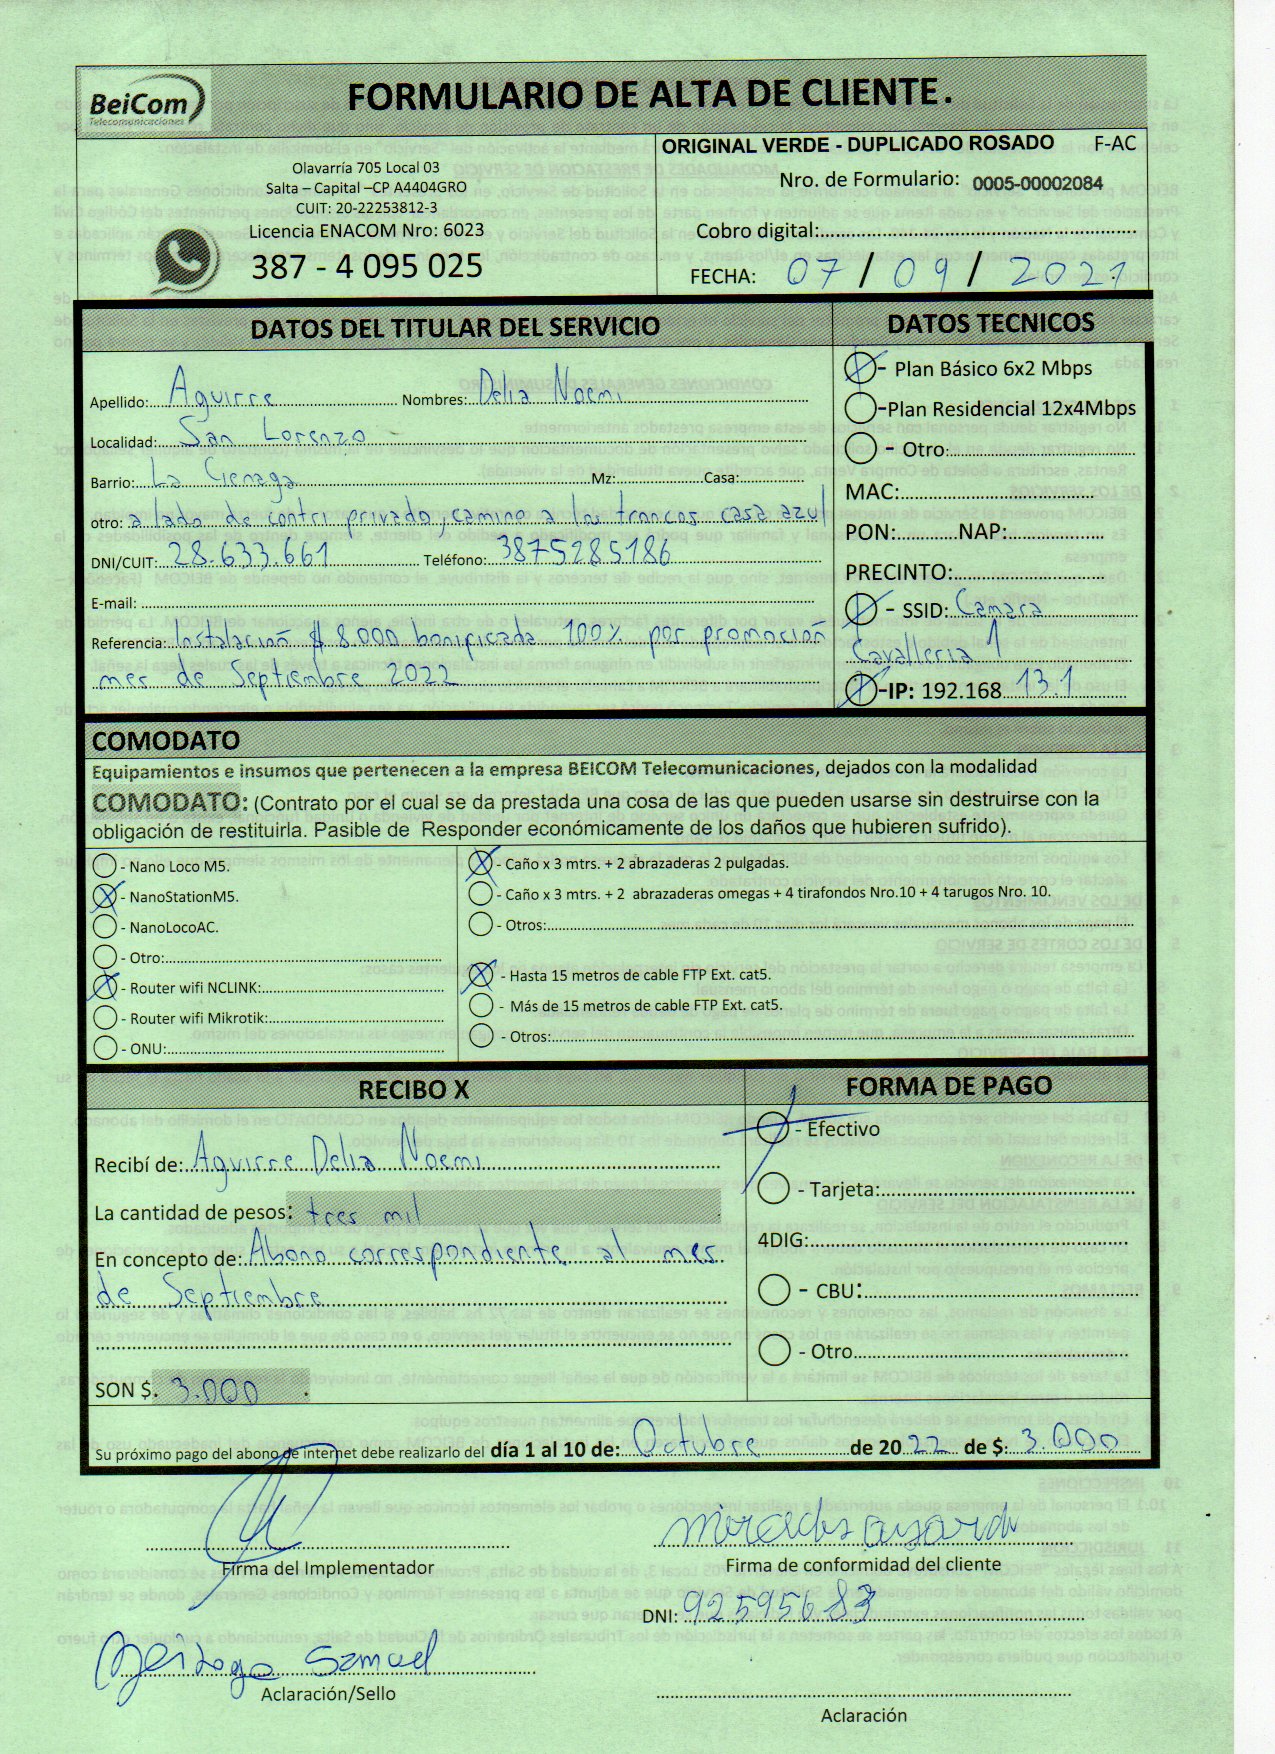 BeiCom
Telecomunicaciones
FORMULARIO DE ALTA DE CLIENTE.
Olavarría 705 Local 03
Salta – Capital –CP A4404GRO
CUIT: 20-22253812-3
Licencia ENACOM Nro: 6023
387 - 4 095 025
ORIGINAL VERDE - DUPLICADO ROSADO F-AC
Nro. de Formulario: 0005-00002084
Cobro digital:
FECHA: 07 / 09 / 2021
DATOS DEL TITULAR DEL SERVICIO
Apellido: Aguirre Nombres: Delia Noemi
Localidad: San Lorenzo
Barrio: La Cienaga Mz: Casa:
otro: a lado de contri privado, camino a los trancos casa azul
DNI/CUIT: 28.633.661 Teléfono: 3875285186
E-mail:
Referencia: Instalación $ 8.000 bonificada 100% por promoción
mes de Septiembre 2022
DATOS TECNICOS
- Plan Básico 6x2 Mbps
-Plan Residencial 12x4Mbps
- Otro:
MAC:
PON: NAP:
PRECINTO:
- SSID: Camara
Cavalleria 1
-IP: 192.168 13.1
COMODATO
Equipamientos e insumos que pertenecen a la empresa BEICOM Telecomunicaciones, dejados con la modalidad
COMODATO: (Contrato por el cual se da prestada una cosa de las que pueden usarse sin destruirse con la
obligación de restituirla. Pasible de Responder económicamente de los daños que hubieren sufrido).
- Nano Loco M5.
- NanoStationM5.
- NanoLocoAC.
- Otro:
- Router wifi NCLINK:
- Router wifi Mikrotik:
- ONU:
- Caño x 3 mtrs. + 2 abrazaderas 2 pulgadas.
- Caño x 3 mtrs. + 2 abrazaderas omegas + 4 tirafondos Nro.10 + 4 tarugos Nro. 10.
- Otros:
- Hasta 15 metros de cable FTP Ext. cat5.
- Más de 15 metros de cable FTP Ext. cat5.
- Otros:
RECIBO X
Recibí de: Aguirre Delia Noemi
La cantidad de pesos: tres mil
En concepto de: Abono correspondiente al mes
de Septiembre
SON $. 3.000
FORMA DE PAGO
- Efectivo
- Tarjeta:
4DIG:
- CBU:
- Otro
Su próximo pago del abono de internet debe realizarlo del día 1 al 10 de: Octubre de 2022 de $: 3.000
Firma del Implementador
Firma de conformidad del cliente
DNI: 92595683
Samuel
Aclaración/Sello
Aclaración